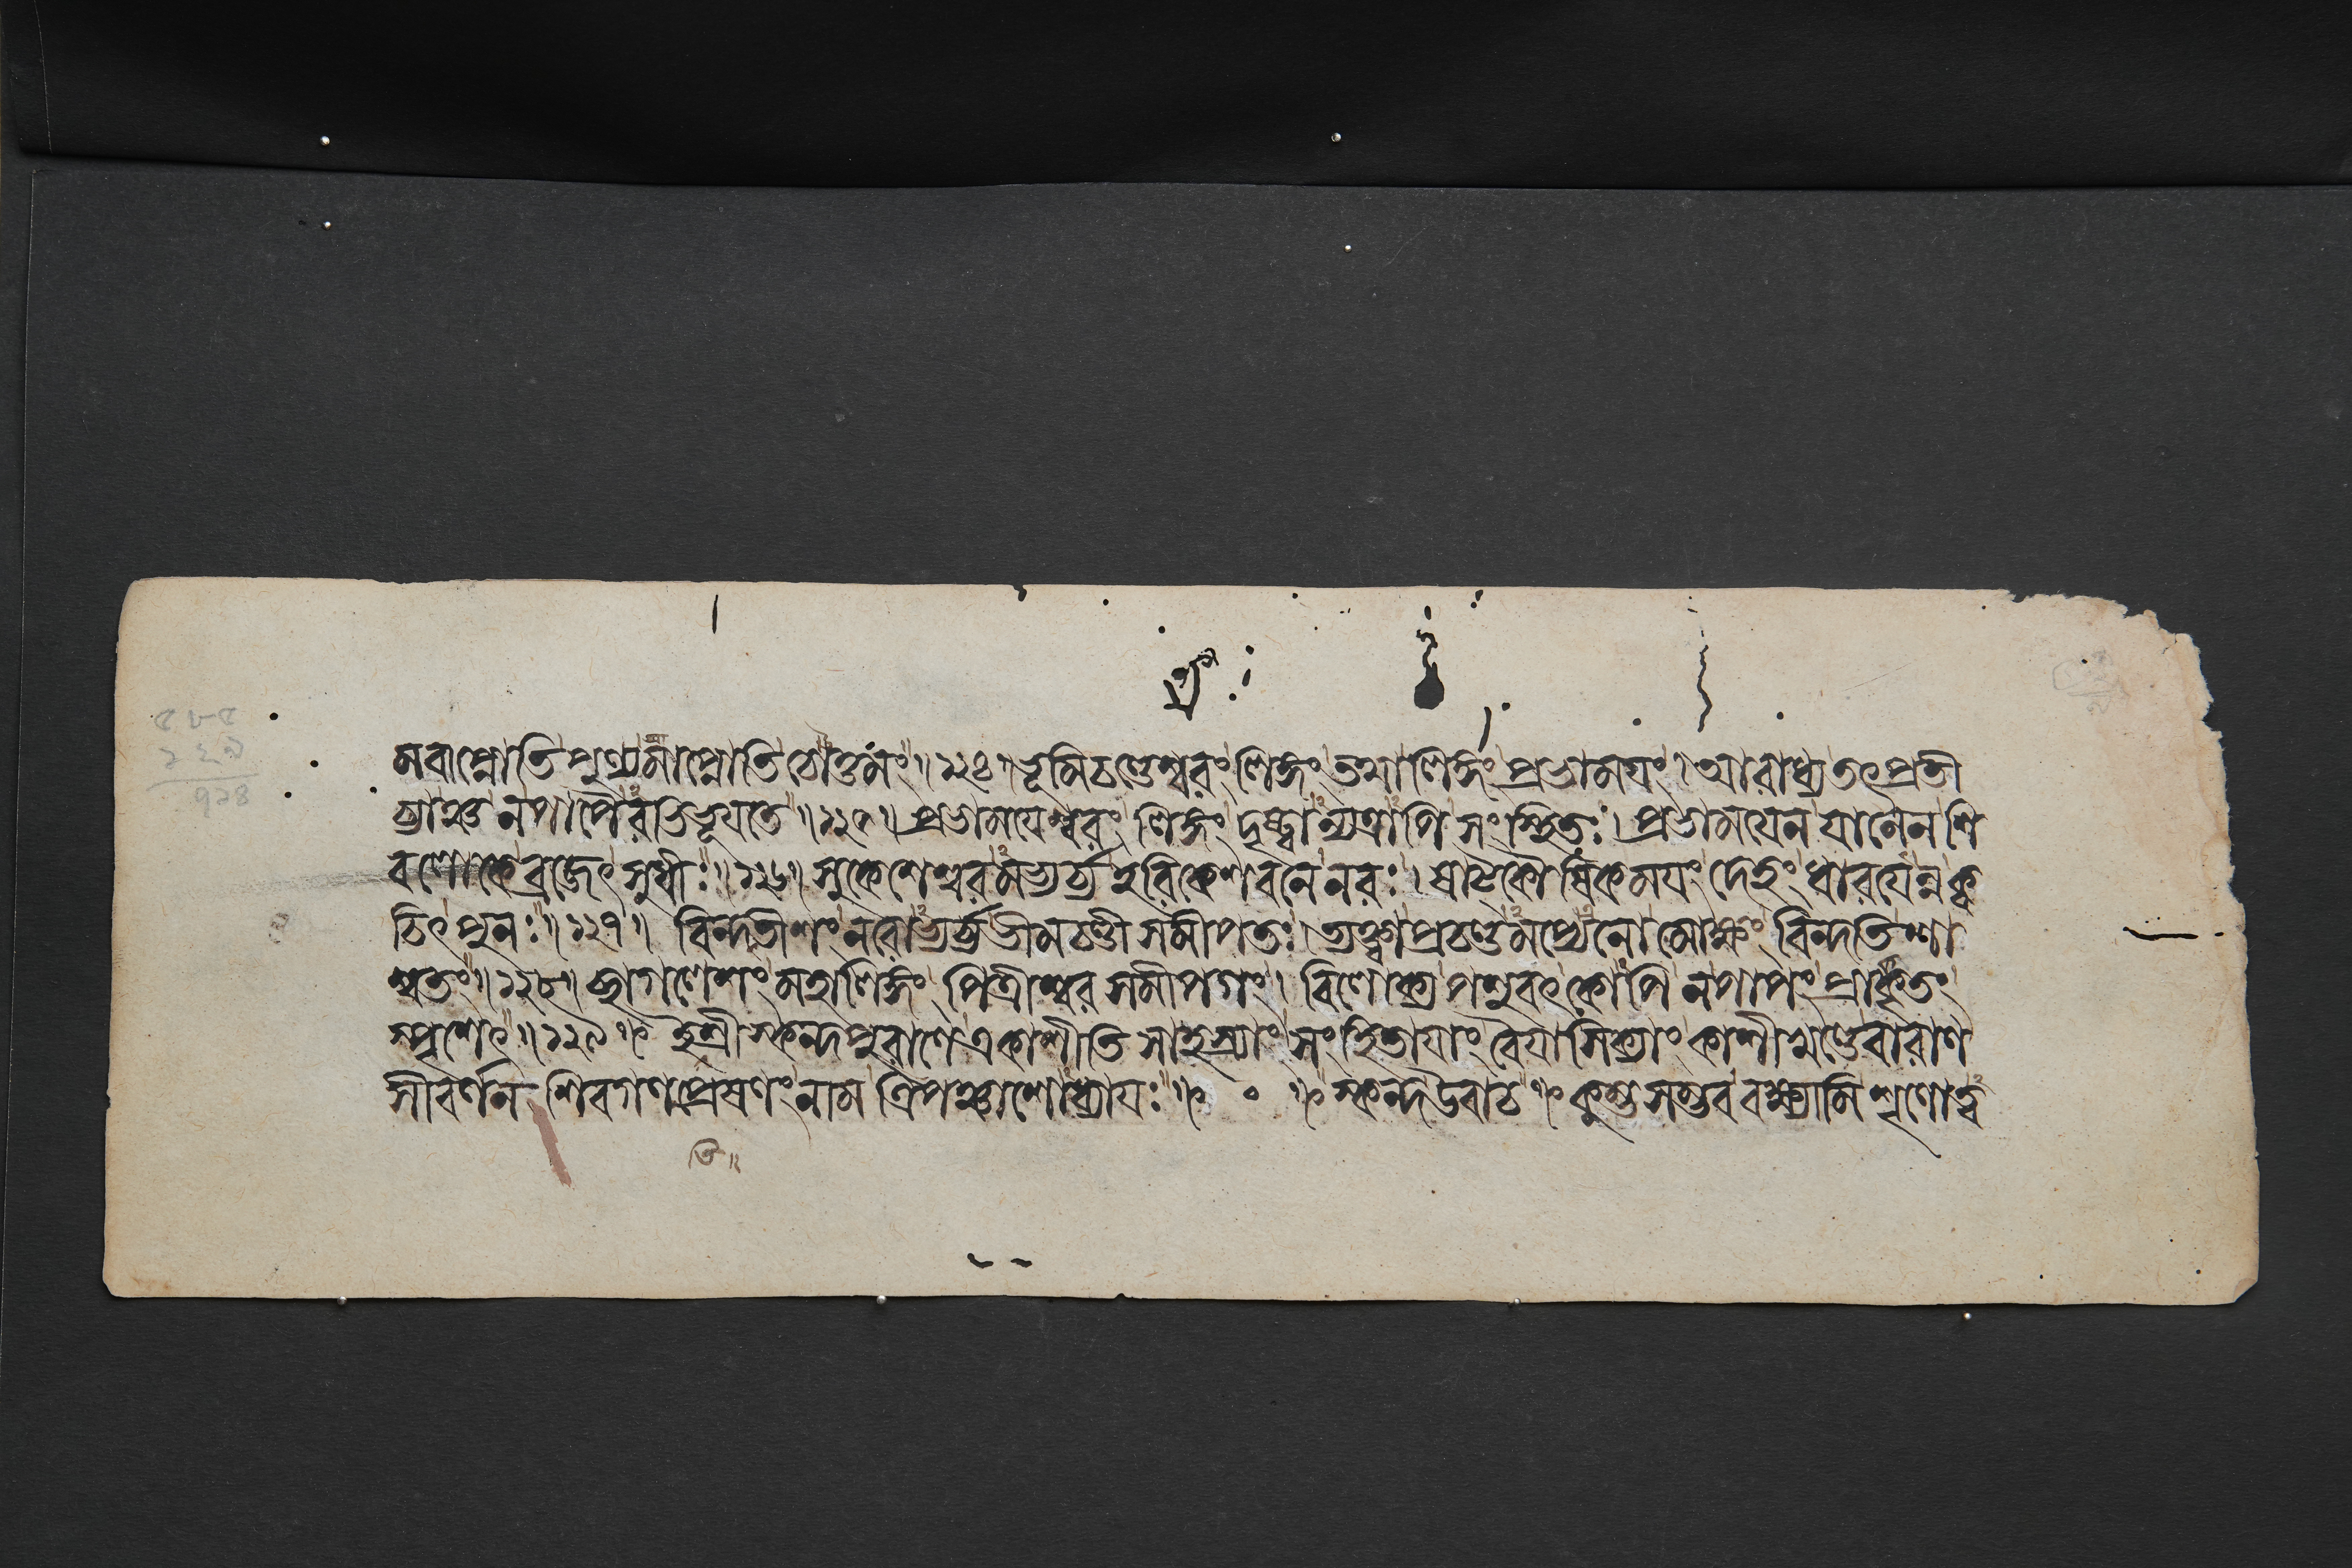 মবাপ্নোতি পুণ্যমাপ্নোতি চোত্তমং ॥ ১২৪ ॥ ভূমিচণ্ডেশ্বরং লিঙ্গং তথালিঙ্গং প্রভাময়ং । আরাধ্য তৎ প্রতী
ত্যাঞ্চ ন পাপৈরভিভূয়তে ॥ ১২৫ ॥ প্রভাময়েশ্বরং লিঙ্গং দৃষ্ট্বান্যত্রাপি সংস্থিতঃ । প্রভাময়েন যানেন শি
বলোকে ব্রজেৎ সুধীঃ ॥ ১২৬ ॥ সুকেশেশ্বরমভ্যর্চ্য হরিকেশবনে নরঃ । ষাট্কৌষিকময়ং দেহং ধারয়েন্ন ক্ব
চিৎ পুনঃ ॥ ১২৭ ॥ বিন্দতীশং নরোভ্যর্চ্য ভীমচণ্ডী সমীপতঃ । ত্যক্ত্বা প্রচণ্ডমপ্যেনো মোক্ষং বিন্দতি শা
শ্বতং ॥ ১২৮ ॥ ছাগলেশং মহালিঙ্গং পিত্রীশ্বর সমীপগং । বিলোক্য পশুবৎ কোপি ন পাপং প্রাকৃতং
স্পৃশেৎ ॥ ১২৯ ॥ ইশ্রীস্কন্দপুরাণে একাশীতি সাহস্র্যাং সংহিতায়াং বৈয়াসিক্যাং কাশীখণ্ডে বারাণ
সীবর্ণন শিবগণপ্রেষণং নাম ত্রিপঞ্চাশোধ্যায়ঃ ॥ ० ॥ স্কন্দ উবাচ ॥ কুম্ভসম্ভব বক্ষ্যামি শৃণোত্ব
তি ॥